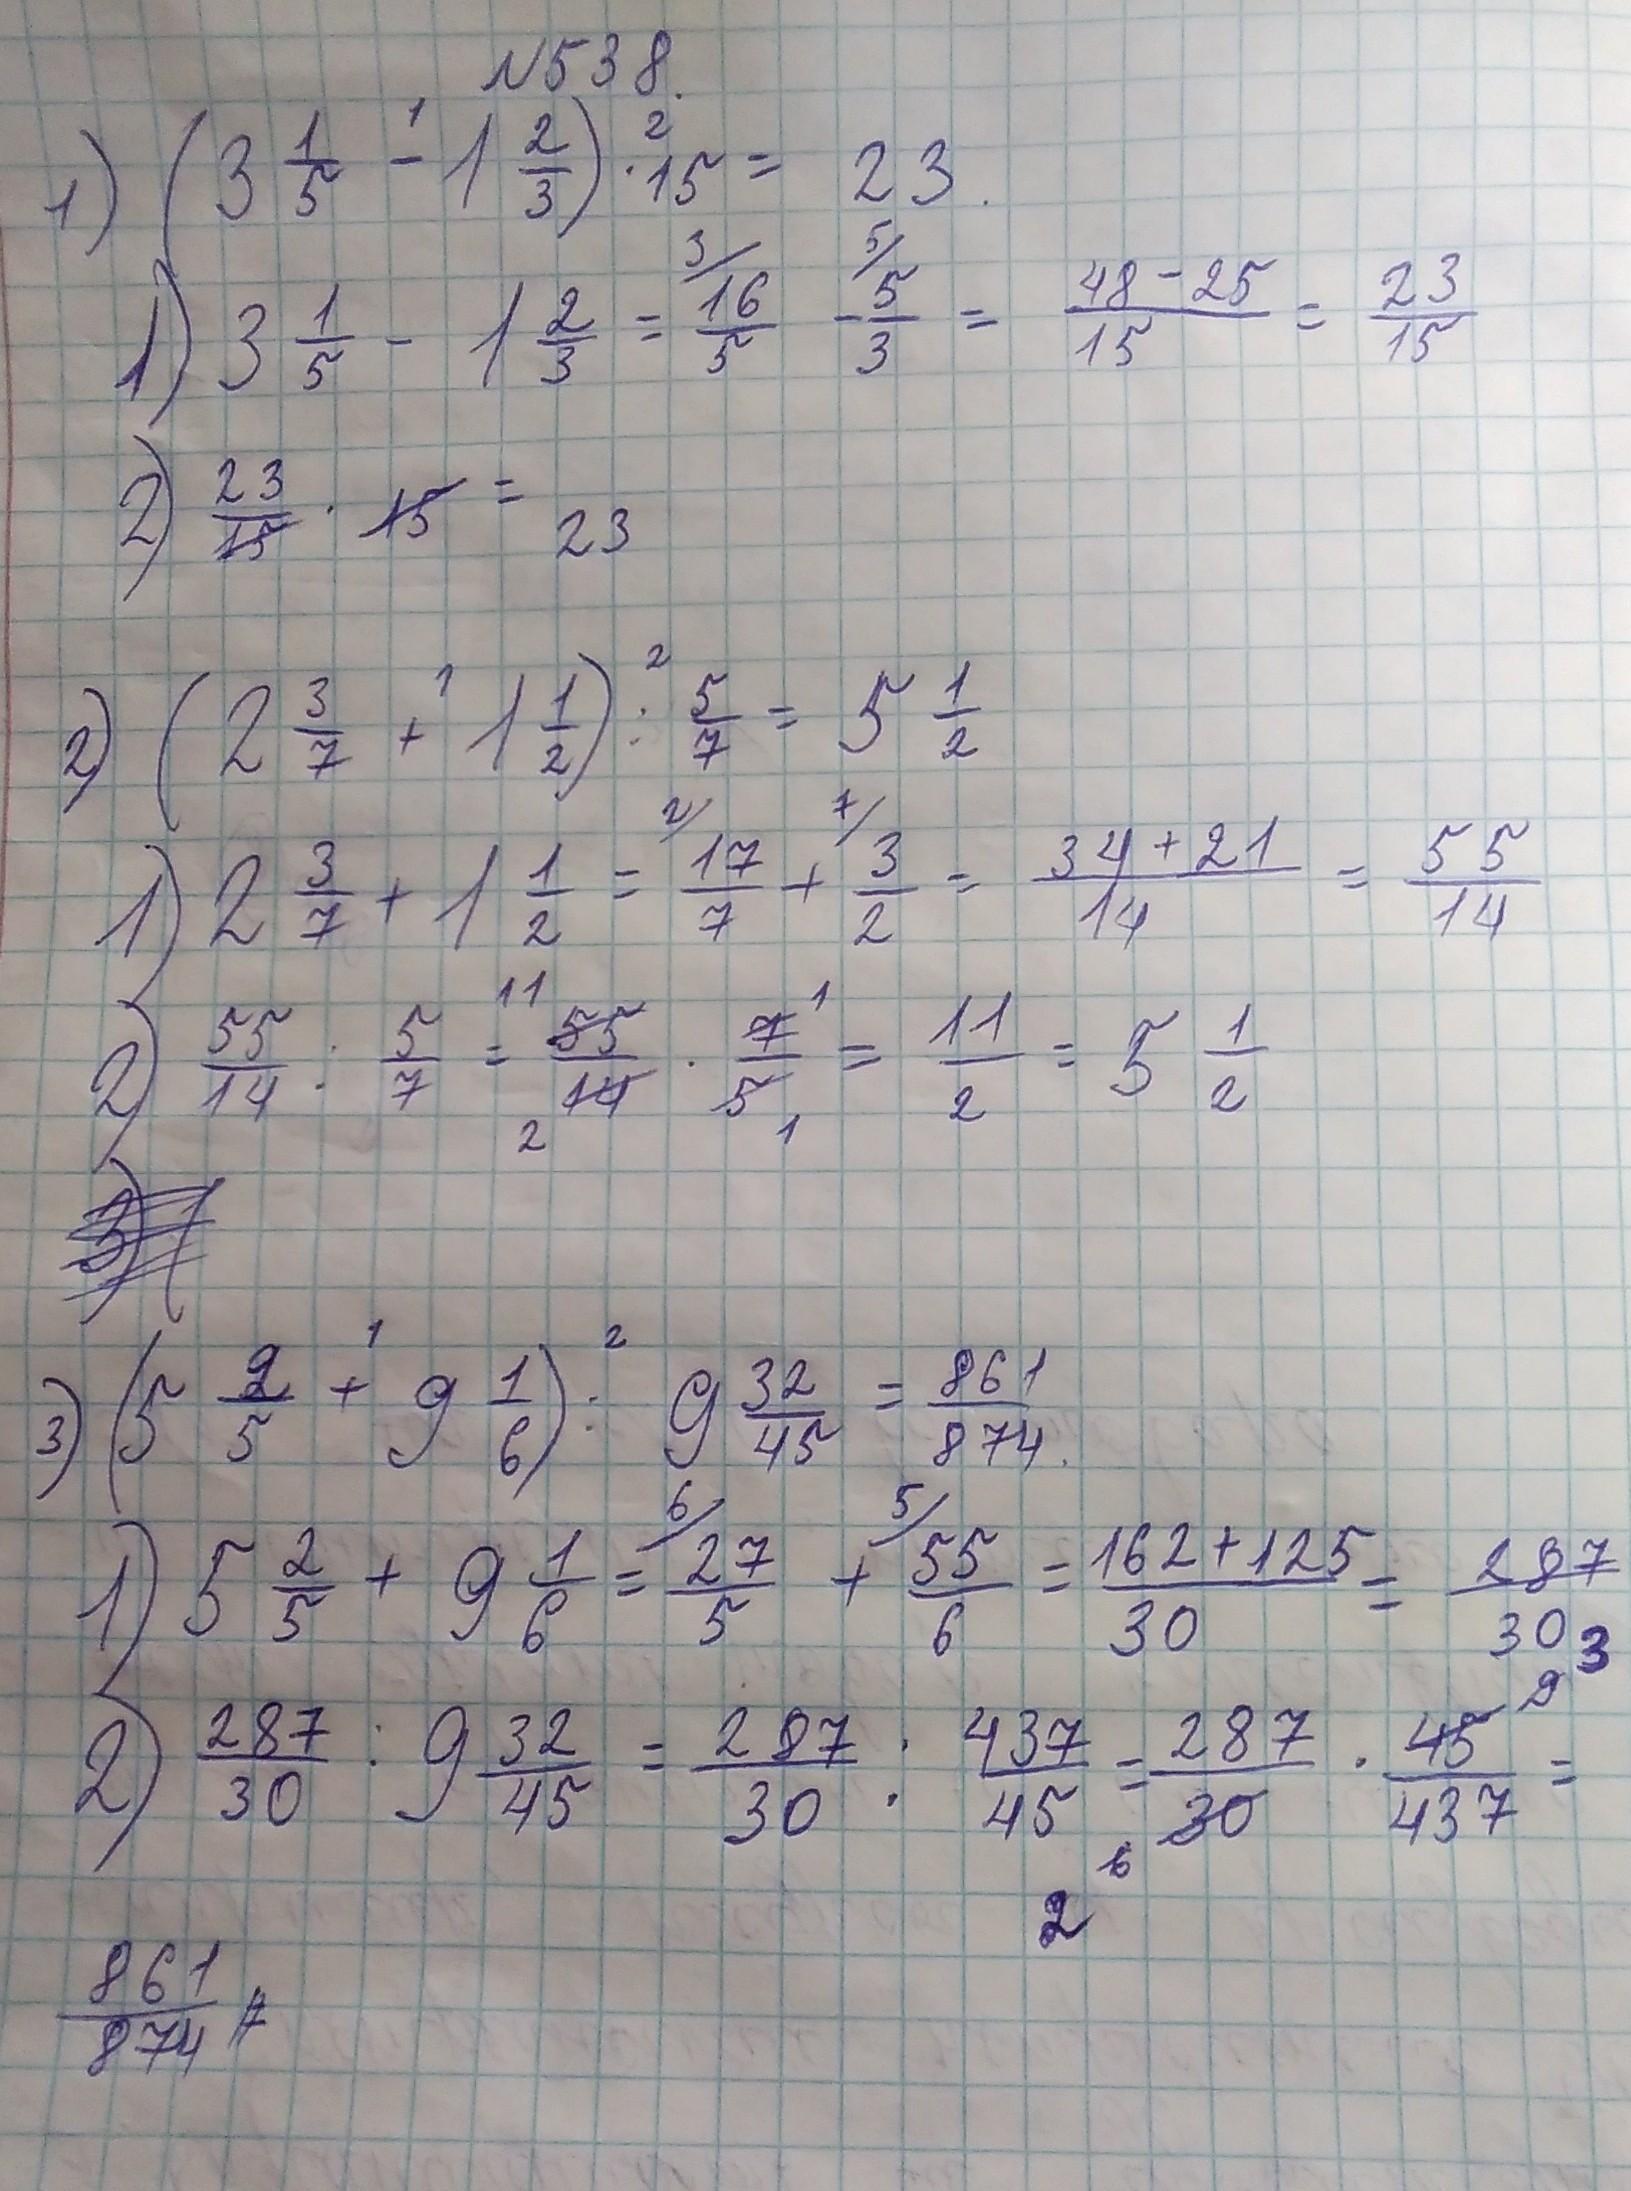 N538.
1) (3 1/5 -¹ 1 2/3) ·² 15 = 23.
1) 3 1/5 - 1 2/3 = ³⁄16/5 - ⁵⁄5/3 = 48-25/15 = 23/15
2) 23/15 · 15 = 23
2) (2 3/7 +¹ 1 1/2) :² 5/7 = 5 1/2
1) 2 3/7 + 1 1/2 = ²⁄17/7 + ⁷⁄3/2 = 34+21/14 = 55/14
2) 55/14 : 5/7 = ¹¹55/14₂ · 7¹/5₁ = 11/2 = 5 1/2
3) (
3) (5 2/5 +¹ 9 1/6) :² 9 32/45 = 861/874.
1) 5 2/5 + 9 1/6 = ⁶⁄27/5 + ⁵⁄55/6 = 162+125/30 = 287/30
2) 287/30 : 9 32/45 = 287/30 : 437/45 = 287/30 ₆ ₂ · 45 ⁹ ³/437 =
861/874